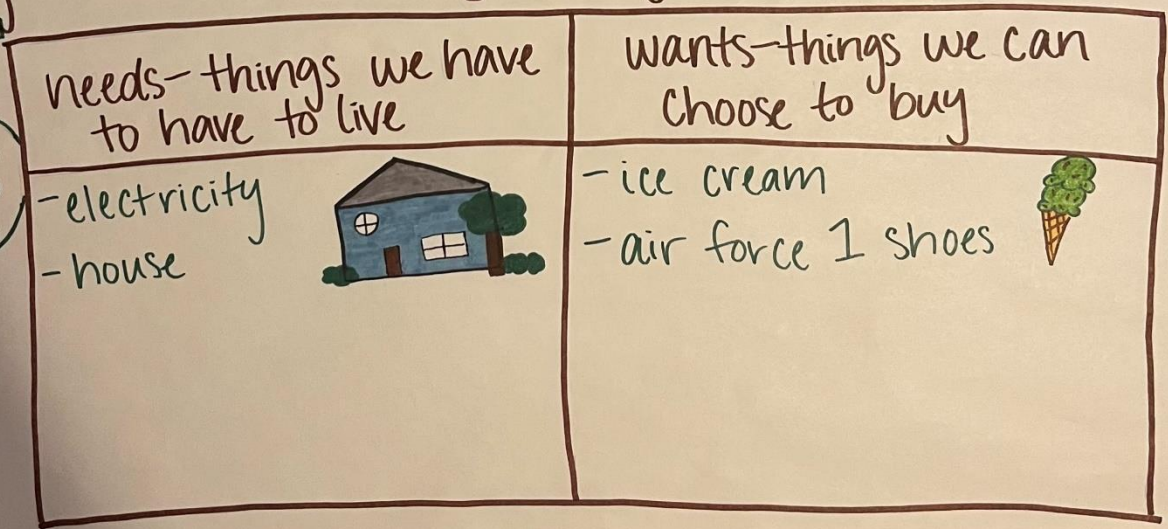 needs-things we have
to have to live
wants-things we can
choose to buy
-electricity
-house
-ice cream
-air force 1 shoes